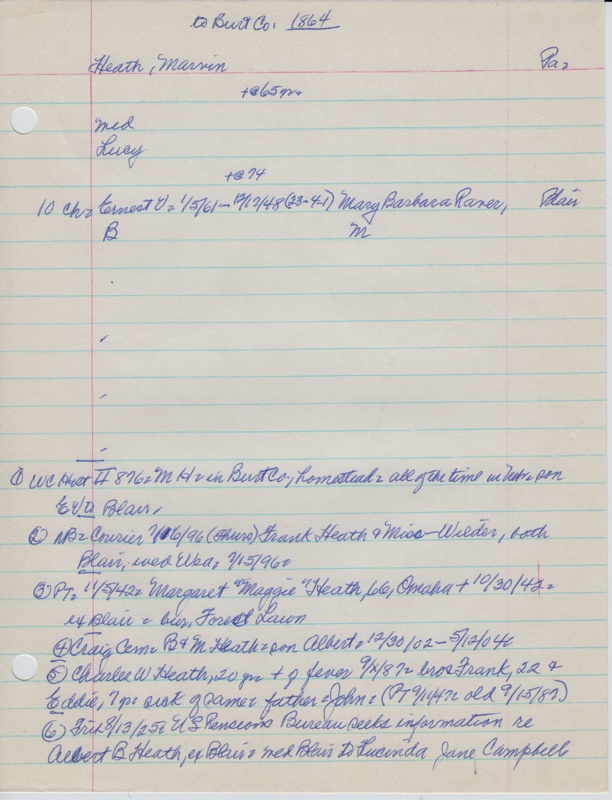 to Burt Co. 1864
Heath, Marvin Pa.
+@65 yr.
med
Lucy
+@74
10 Ch= Ernest V= 1/5/61- 12/17/48 (23-4-1) Mary Barbara Raver, Blair
B M
① WC Hist II 876= M H= in Burt Co, homestead= all of the time in Nebr= son
EV @ Blair.
② NB= Courier 7/16/96 (Thurs) Frank Heath & Miss - Wilder, both
Blair, wed Wed. 7/15/96=
③ PT= 11/5/42= Margaret "Maggie" Heath, 66, Omaha + 10/30/42=
ex Blair= bur, Forest Lawn
④ Craig Cem= B & M Heath= son Albert= 12/30/02 - 5/12/04
⑤ Charles W Heath, 20 yr + of fever 9/4/87= bros Frank, 22 &
Eddie, 7 yr sick of same= father= John= old 9/15/87)
⑥ Fri 8/13/25= US Pensions Bureau seeks information re
Albert B Heath, ex Blair= med Blair to Lucinda Jane Campbell